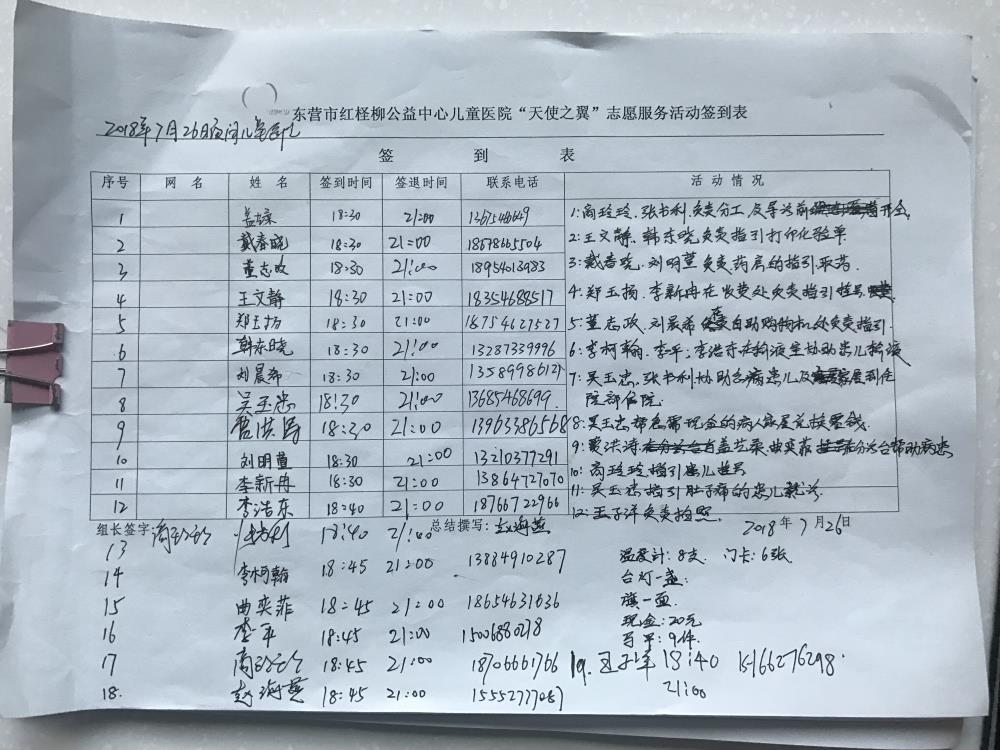 东营市红柽柳公益中心儿童医院“天使之翼”志愿服务活动签到表
2018年7月26日夜间儿童医院
签 到 表
序号 网 名 姓 名 签到时间 签退时间 联系电话 活 动 情 况
1 18:30 21:00
2 戴春晓 18:30 21:00 18678665504
3 董志政 18:30 21:00 18954013983
4 王文静 18:30 21:00 18354688517
5 郑玉扬 18:30 21:00 18754627527
6 韩东晓 18:30 21:00 13287339996
7 刘晨希 18:30 21:00
8 吴玉忠 18:30 21:00 13685468699
9 18:30 21:00 13963386568
10 刘明萱 18:30 21:00 13210377291
11 李新冉 18:30 21:00 13864727070
12 李浩东 18:40 21:00 18766722966
1:商玲玲、张书利负责分工及导诊前
2:王文静、韩东晓负责指引打印化验单
3:戴春晓、刘明萱负责药房的指引取药
4:郑玉扬、李新冉在收费处负责指引挂号
5:董志政、刘晨希在自助购物机处负责指引
6:李柯翰、李平、李浩东在输液室协助患儿输液
7:吴玉忠、张书利协助台病患儿及家属到住
院部住院
8:吴玉忠帮急需现金的病人家属兑换零钱
9: 曲奕菲 分诊台帮助病患
10:商玲玲指引患儿挂号
11:吴玉忠指引肚子痛的患儿就诊
12:王子洋负责拍照
组长签字:商玲玲 总结撰写:赵海燕 2018年7月26日
13 张书利 18:40 21:00
14 李柯翰 18:45 21:00 13884910287
15 曲奕菲 18:45 21:00 18654631636
16 李平 18:45 21:00 15006880278
17 商玲玲 18:45 21:00 18706661766
18. 赵海燕 18:45 21:00 15552777087
温度计:8支 门卡:6张
台灯一盏
旗一面
现金:20元
马甲:9件
19. 王子洋 18:40 15166276298
21:00